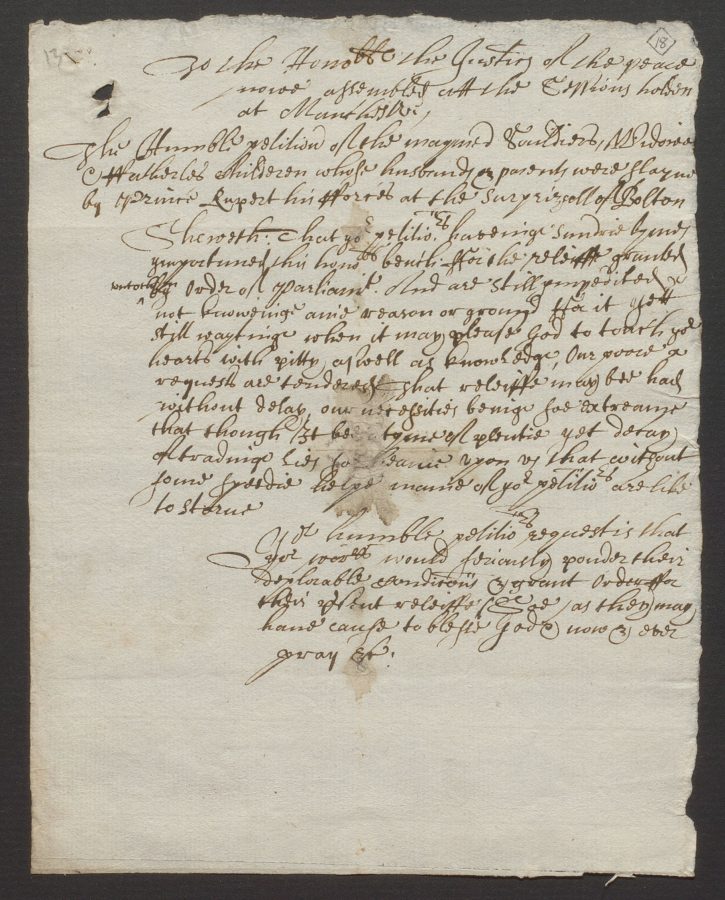 13
18
To the Honoble the Justices of the peace
nowe assembled att the Sessions holden
at Manchester,
The Humble petition of the maymed Souldiers, Widowes
& ffatherles Children whose husbands & parents were slayne
by Prince Rupert his fforces at the Surprizall of Bolton
Sheweth. That yor petitio:rs haveinge sundrie tymes
importuned this hono:ble bench ffor the releiffe granted
by Order of Parliamt. And are still impedited
not knoweinge anie reason or ground ffor it yett
still waytinge when it may please God to touch yor
hearts with pitty aswell as knowledge, Our poore
requests are tendered that releiffe may bee had
without delay, our necessities beinge soe extreame
that though It bee a tyme of plentie yet decay
of tradinge lies soe heavie upon us that without
some speedie helpe manie of yor petitio:rs are like
to starve
Yor humble petitio:rs request is that
yor worps would seriously ponder their
deplorable conditions & grant Order ffor
their psent releiffe Soe, as they may
have cause to blesse God & now & ever
pray &c: